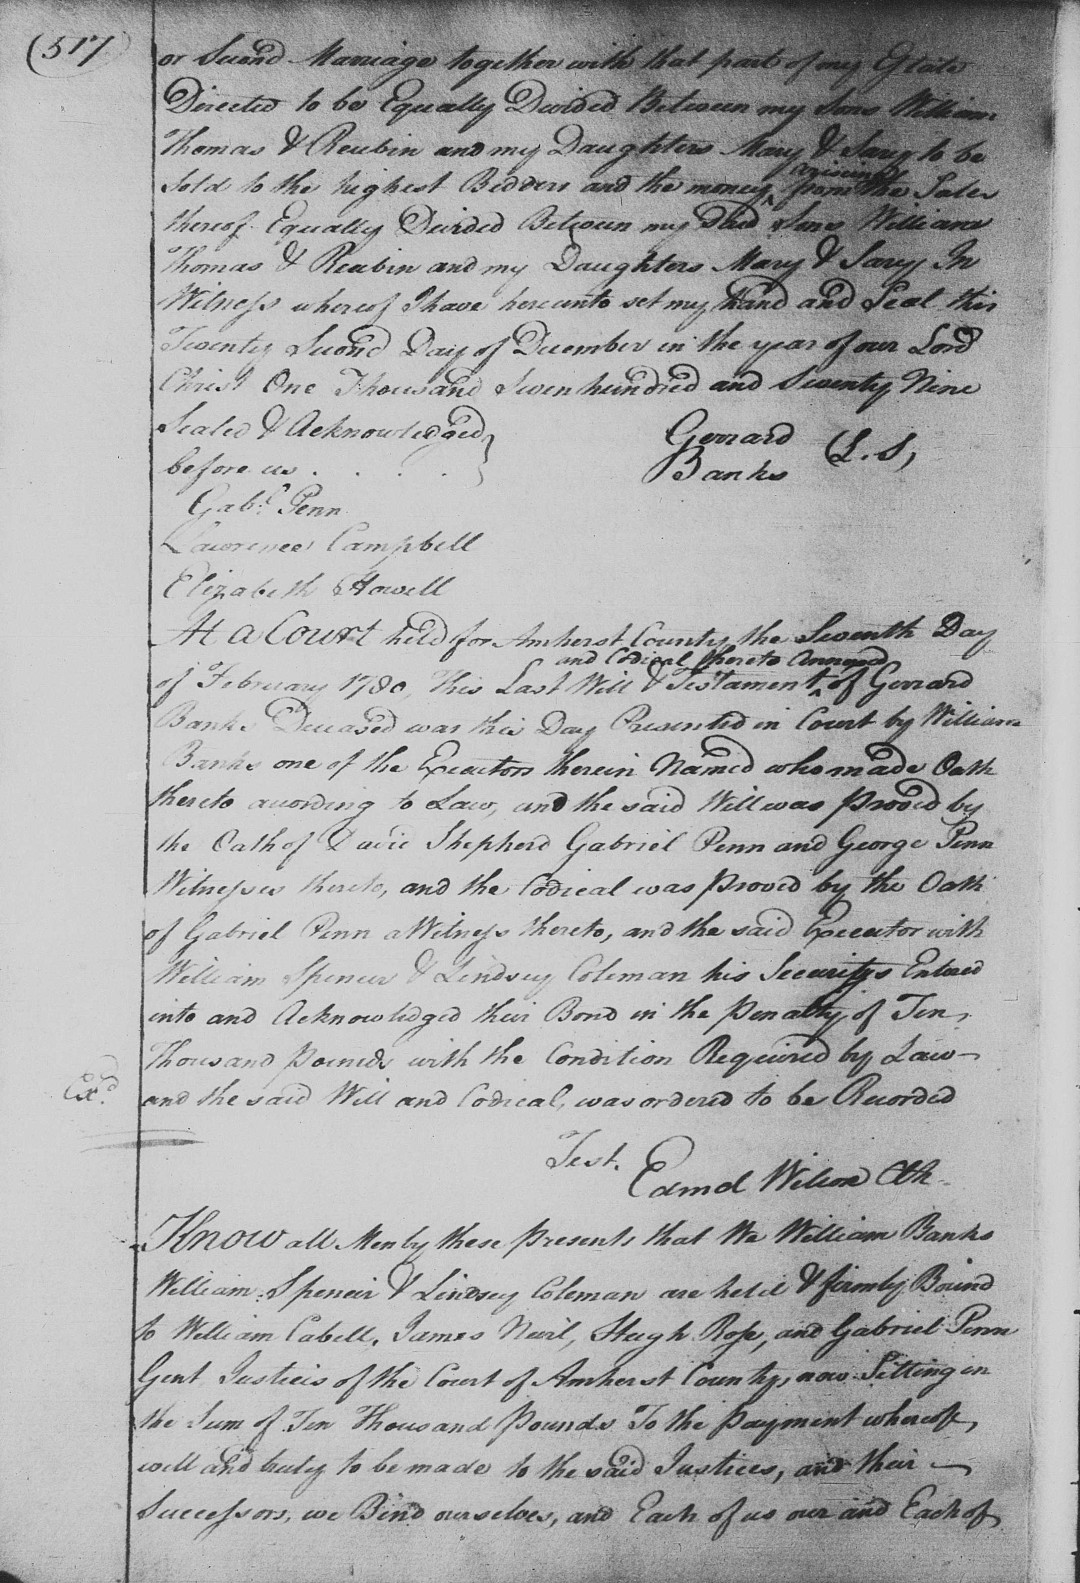 (517)
or Second Marriage together with that part of my Estate
Directed to be Equally Divided Between my Sons William
Thomas & Reubin and my Daughters Mary & Sary to be
Sold to the highest Bidders and the money arising from the Sales
thereof Equally Divided Between my Said Sons William
Thomas & Reubin and my Daughters Mary & Sary In
Witness whereof I have hereunto set my Hand and Seal this
Twenty Second Day of December in the year of our Lord
Christ One Thousand Seven hundred and Seventy Nine
Sealed & Acknowledged
before us . . . .
Gerrard
Banks (L.S,
Gabl. Penn
Lawrence Campbell
Elizabeth Howell
At a Court held for Amherst County the Seventh Day
of February 1780, This Last Will & Testament and Codical thereto Annexed of Gerrard
Banks Deceased was this Day Presented in Court by William
Banks one of the Executors therein Named who made Oath
thereto according to Law, and the said Will was Proved by
the Oath of David Shepherd Gabriel Penn and George Penn
Witnesses thereto, and the Codical was Proved by the Oath
of Gabriel Penn a Witness thereto, and the said Executor with
William Spencer & Lindsey Coleman his Securitys Entered
into and Acknowledged their Bond in the Penalty of Ten,
Thousand Pounds with the Condition Required by Law—
Exd.
and the said Will and Codical, was ordered to be Recorded
Test.
Edmd Wilcox Clk.
Know all Men by these Presents that We William Banks
William Spencer & Lindsey Coleman are held & firmly Bound
to William Cabell, James Nevil, Hugh Rose, and Gabriel Penn
Gent Justices of the Court of Amherst County, now Sitting in
the Sum of Ten Thousand Pounds To the Payment whereof,
well and truly to be made to the said Justices, and their —
Successors, we Bind ourselves, and Each of us our and Each of